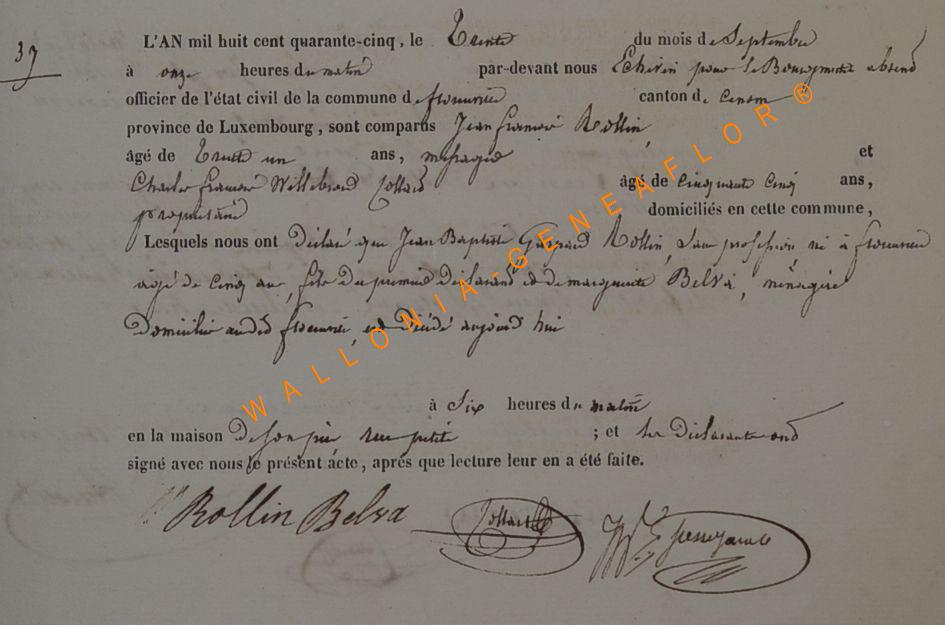 37
L'AN mil huit cent quarante-cinq, le Trente du mois de Septembre
à onze heures du matin par-devant nous Echevin pour le Bourgmestre absent
officier de l'état civil de la commune de canton de
province de Luxembourg, sont comparus Jean François Rollin,
âgé de Trente un ans, messager et
Charles François Willebrord Collard âgé de cinquante cinq ans,
propriétaire domiciliés en cette commune,
Lesquels nous ont Déclaré que Jean Baptiste Gaspard Rollin, sans profession né à
agé de cinq ans, fils du premier déclarant et de marguerite Belva, ménagère
Domicilié audit est Décédé aujourd'hui
à Six heures du matin
en la maison De son père rue petite ; et les Déclarants ont
signé avec nous le présent acte, après que lecture leur en a été faite.
Rollin Belva Collard
WALLONIA-GENEAFLOR®